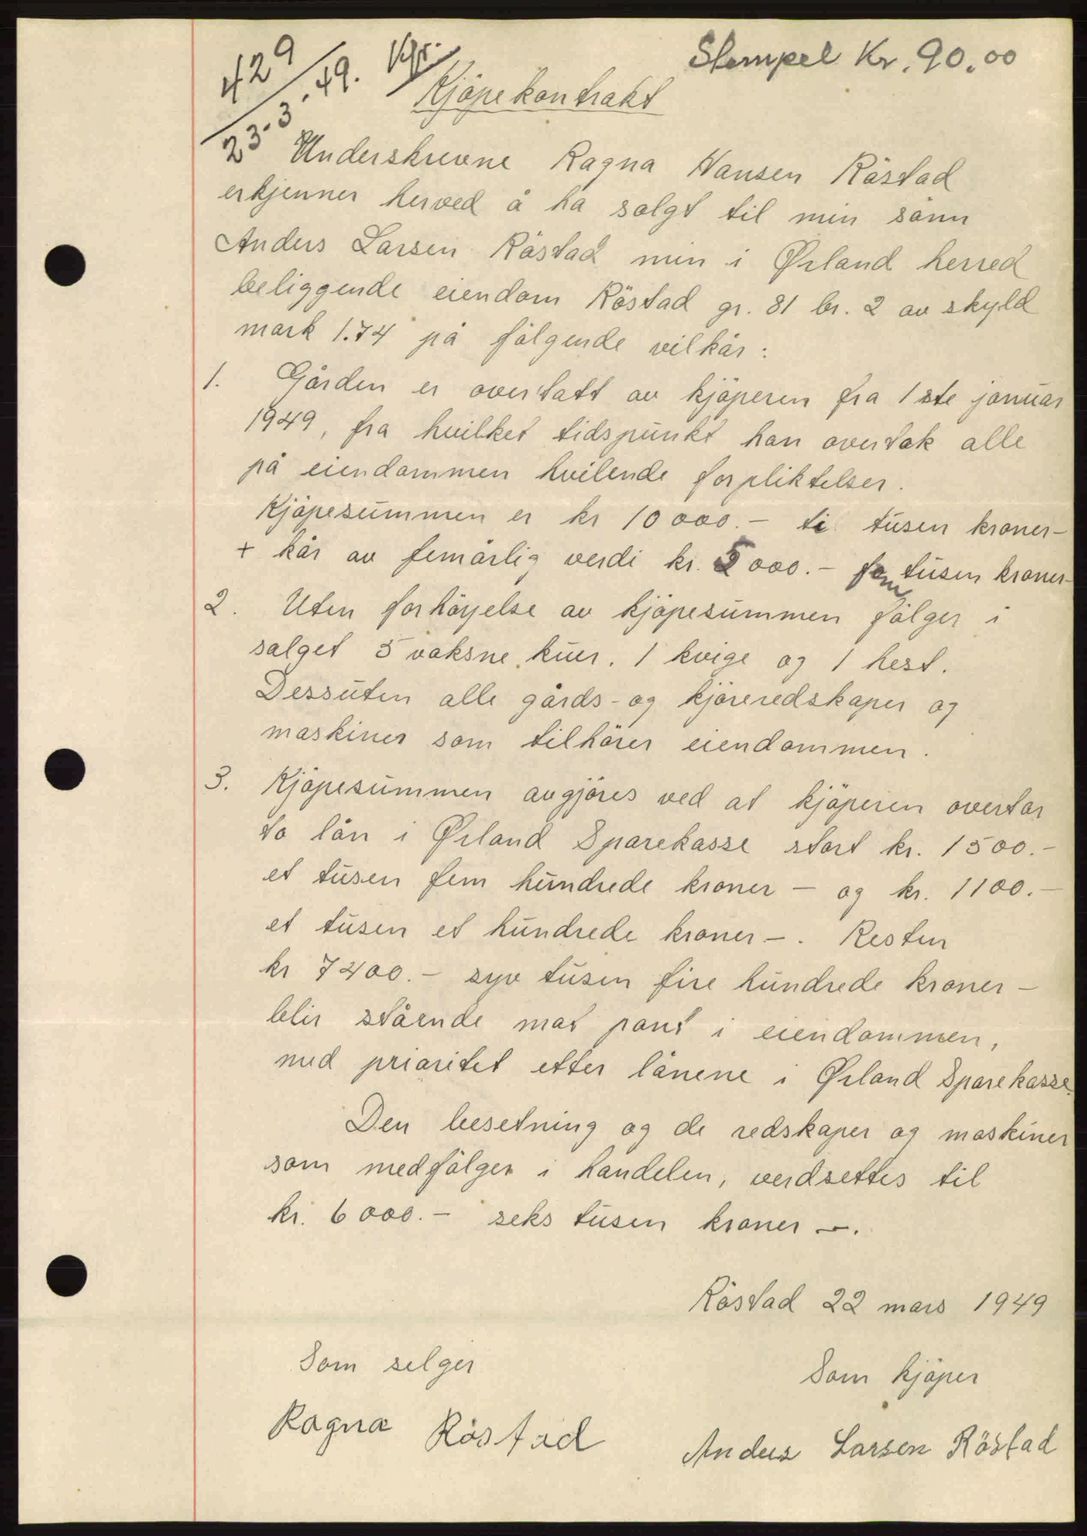 429
23-3-49. Kfr.
Stempel Kr. 90.00
Kjöpekontrakt
Underskrevne Ragna Hansen Röstad
erkjenner herved å ha solgt til min sönn
Anders Larsen Röstad min i Ørland herred
beliggende eiendom Röstad gr. 81 br. 2 av skyld
mark 1.74 på fölgende vilkår:
1. Gården er overtatt av kjöperen fra 1ste januar
1949, fra hvilket tidspunkt han overtok alle
på eiendommen hvilende forpliktelser.
Kjöpesummen er kr 10000.- ti tusen kroner-
+ kår av femårlig verdi kr. 5000.- fem tusen kroner-
2. Uten forhöyelse av kjöpesummen fölger i
salget 5 voksne kuer. 1 kvige og 1 hest.
Dessuten alle gårds- og kjöreredskaper og
maskiner som tilhörer eiendommen.
3. Kjöpesummen avgjöres ved at kjöperen overtar
to lån i Ørland Sparekasse stort kr. 1500.-
et tusen fem hundrede kroner - og kr. 1100.-
et tusen et hundrede kroner -. Resten
kr 7400.- syv tusen fire hundrede kroner -
blir stående mot pant i eiendommen,
med prioritet etter lånene i Ørland Sparekasse.
Den besetning og de redskaper og maskiner
som medfölger i handelen, verdsettes til
kr. 6000.- seks tusen kroner -.
Röstad 22 mars 1949
Som selger
Som kjöper
Ragna Röstad
Anders Larsen Röstad